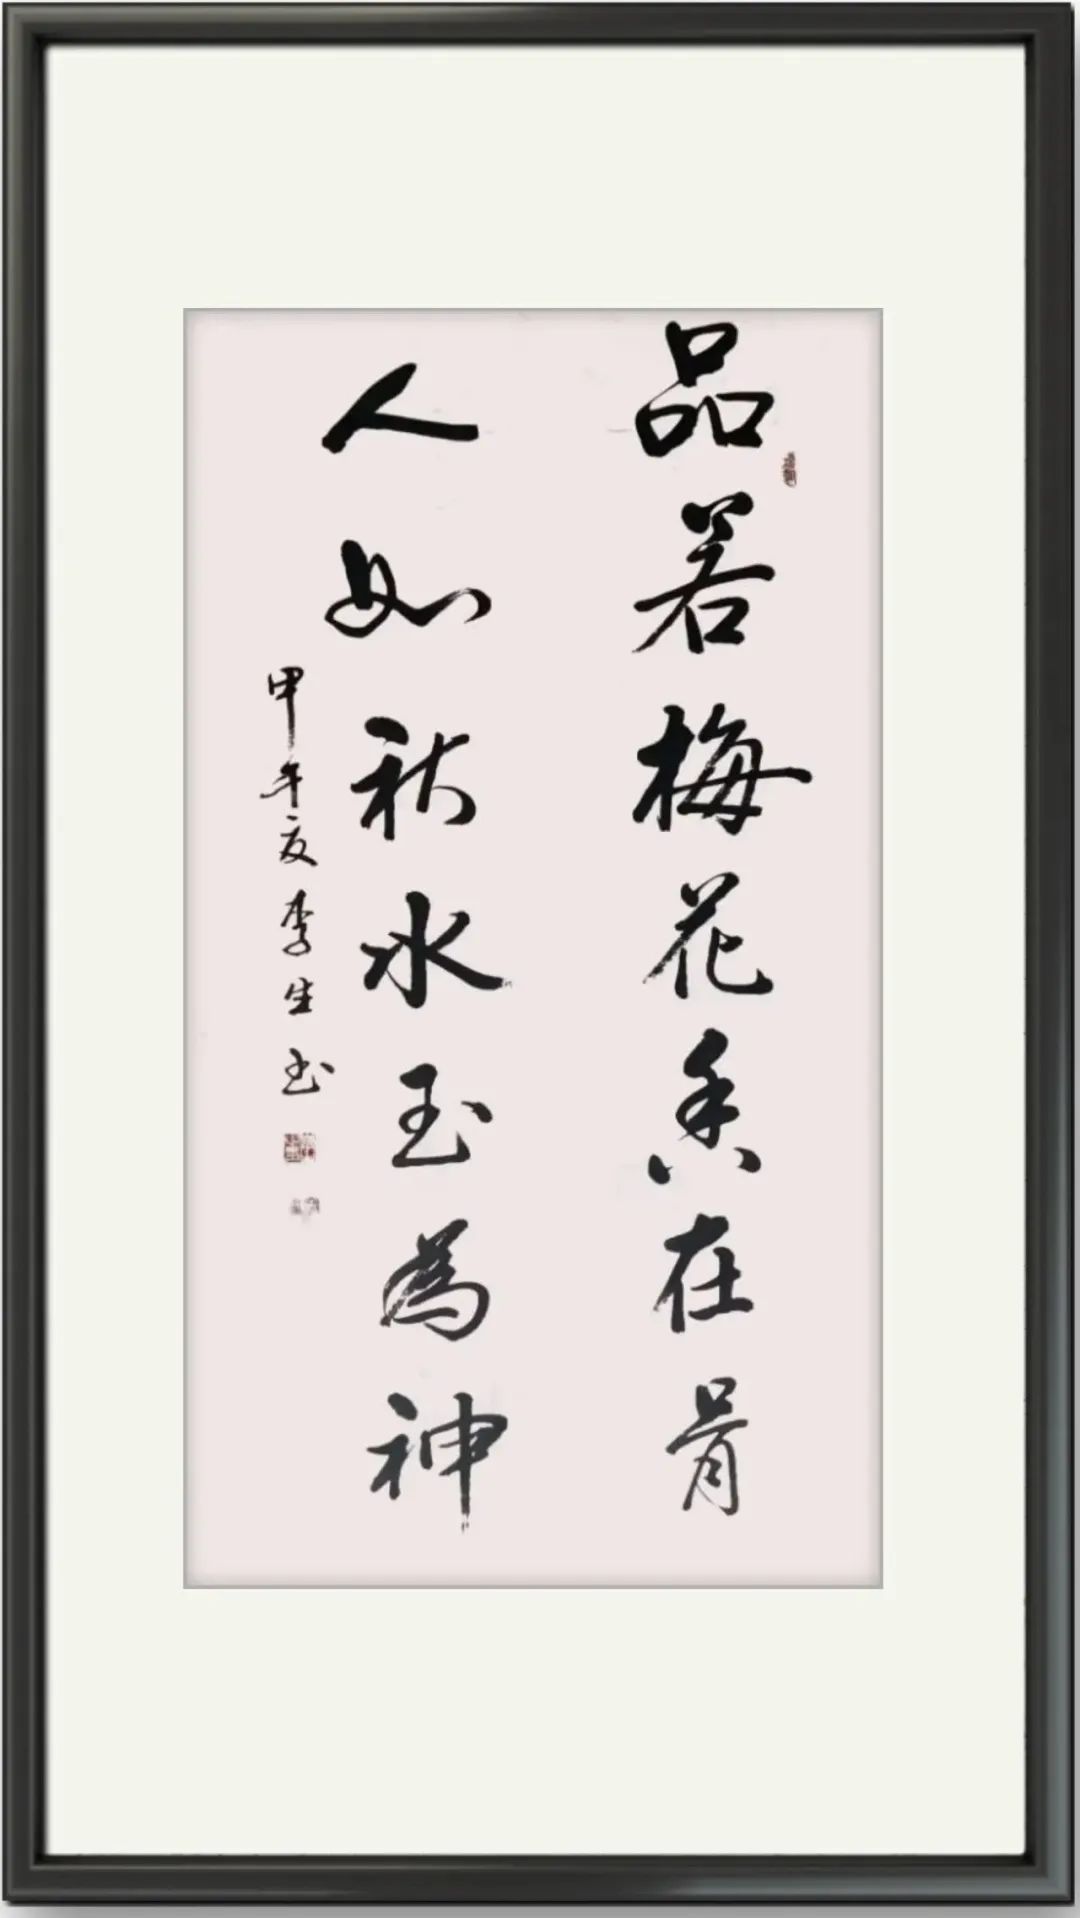 品若梅花香在骨
人如秋水玉為神
甲午夏李生玉